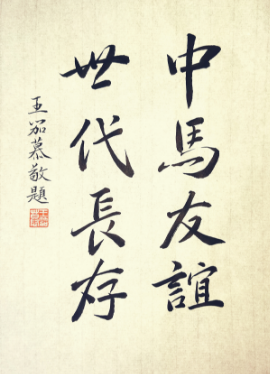 中馬友誼
世代長存
王笳慕敬題